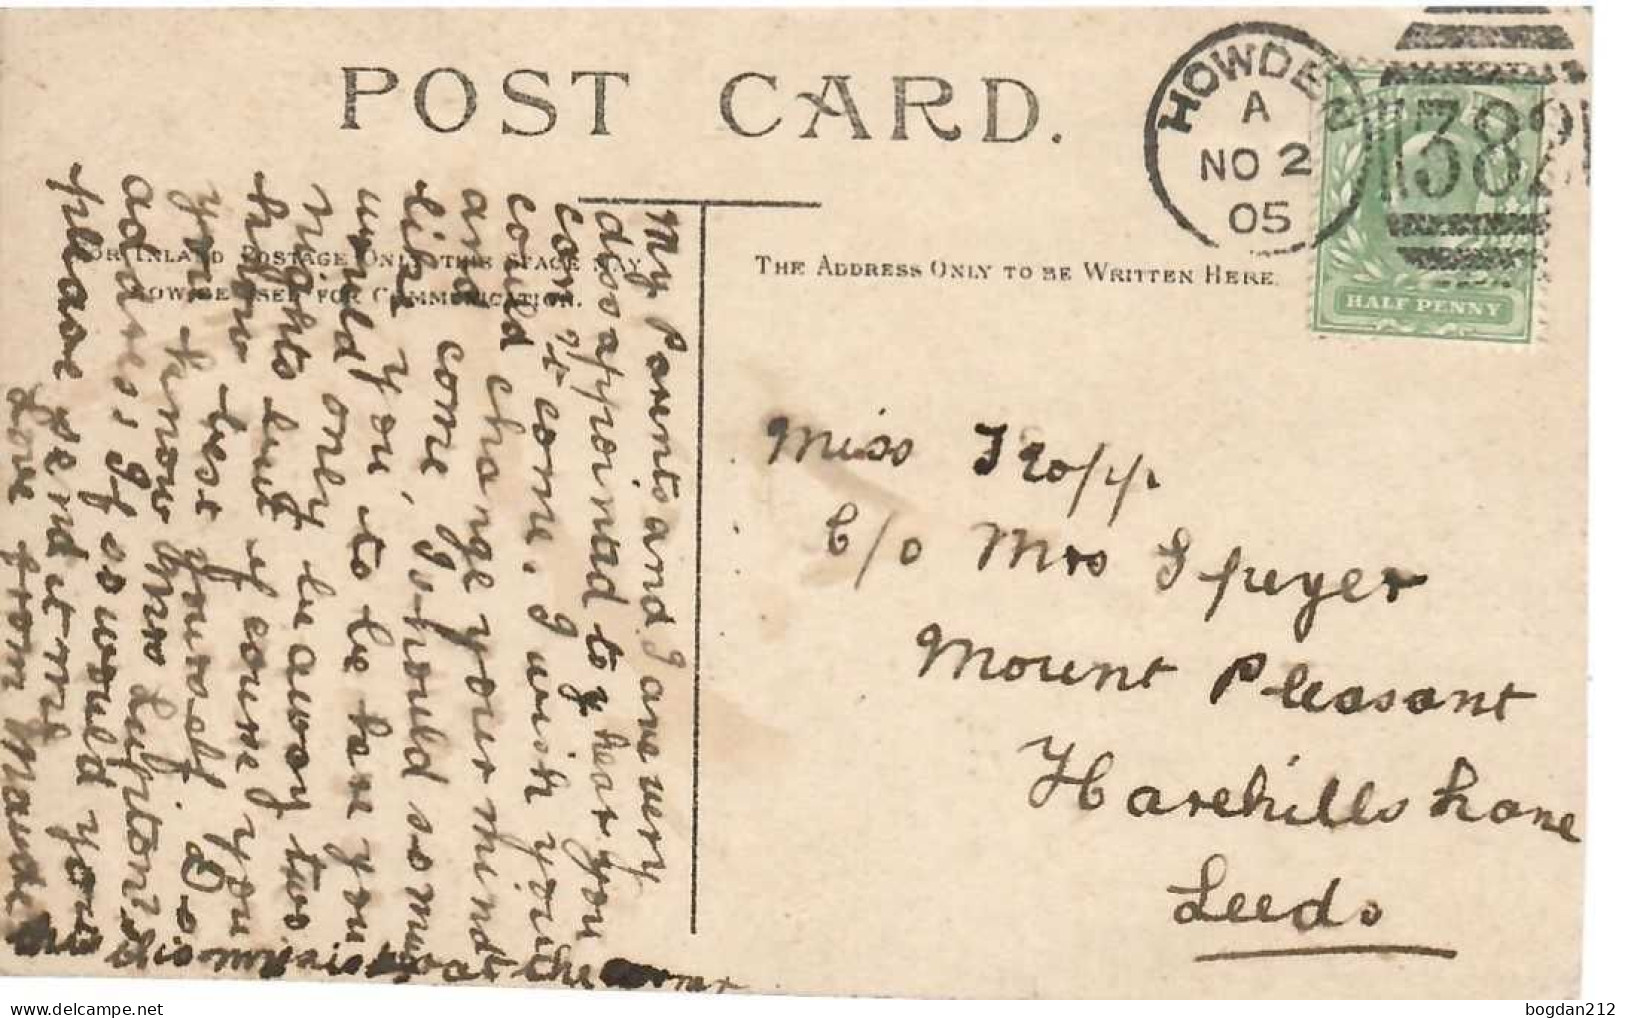 POST CARD.
HOWDEN
A
NO 2
05
382
HALF PENNY
FOR INLAND POSTAGE ONLY THIS SPACE MAY
NOW BE USED FOR COMMUNICATION.
THE ADDRESS ONLY TO BE WRITTEN HERE.
My Parents and I are very
dissappointed to hear you
can't come. I wish you
could change your mind
and come, I should so much
like you to be here you
would only be away two
nights but of course you
know best yourself. Do
you know Mrs Lupton's
address if so would you
please send it me
Love from Maude
Miss
C/o Mrs
Mount Pleasant
Harehills Lane
Leeds
bogdan212